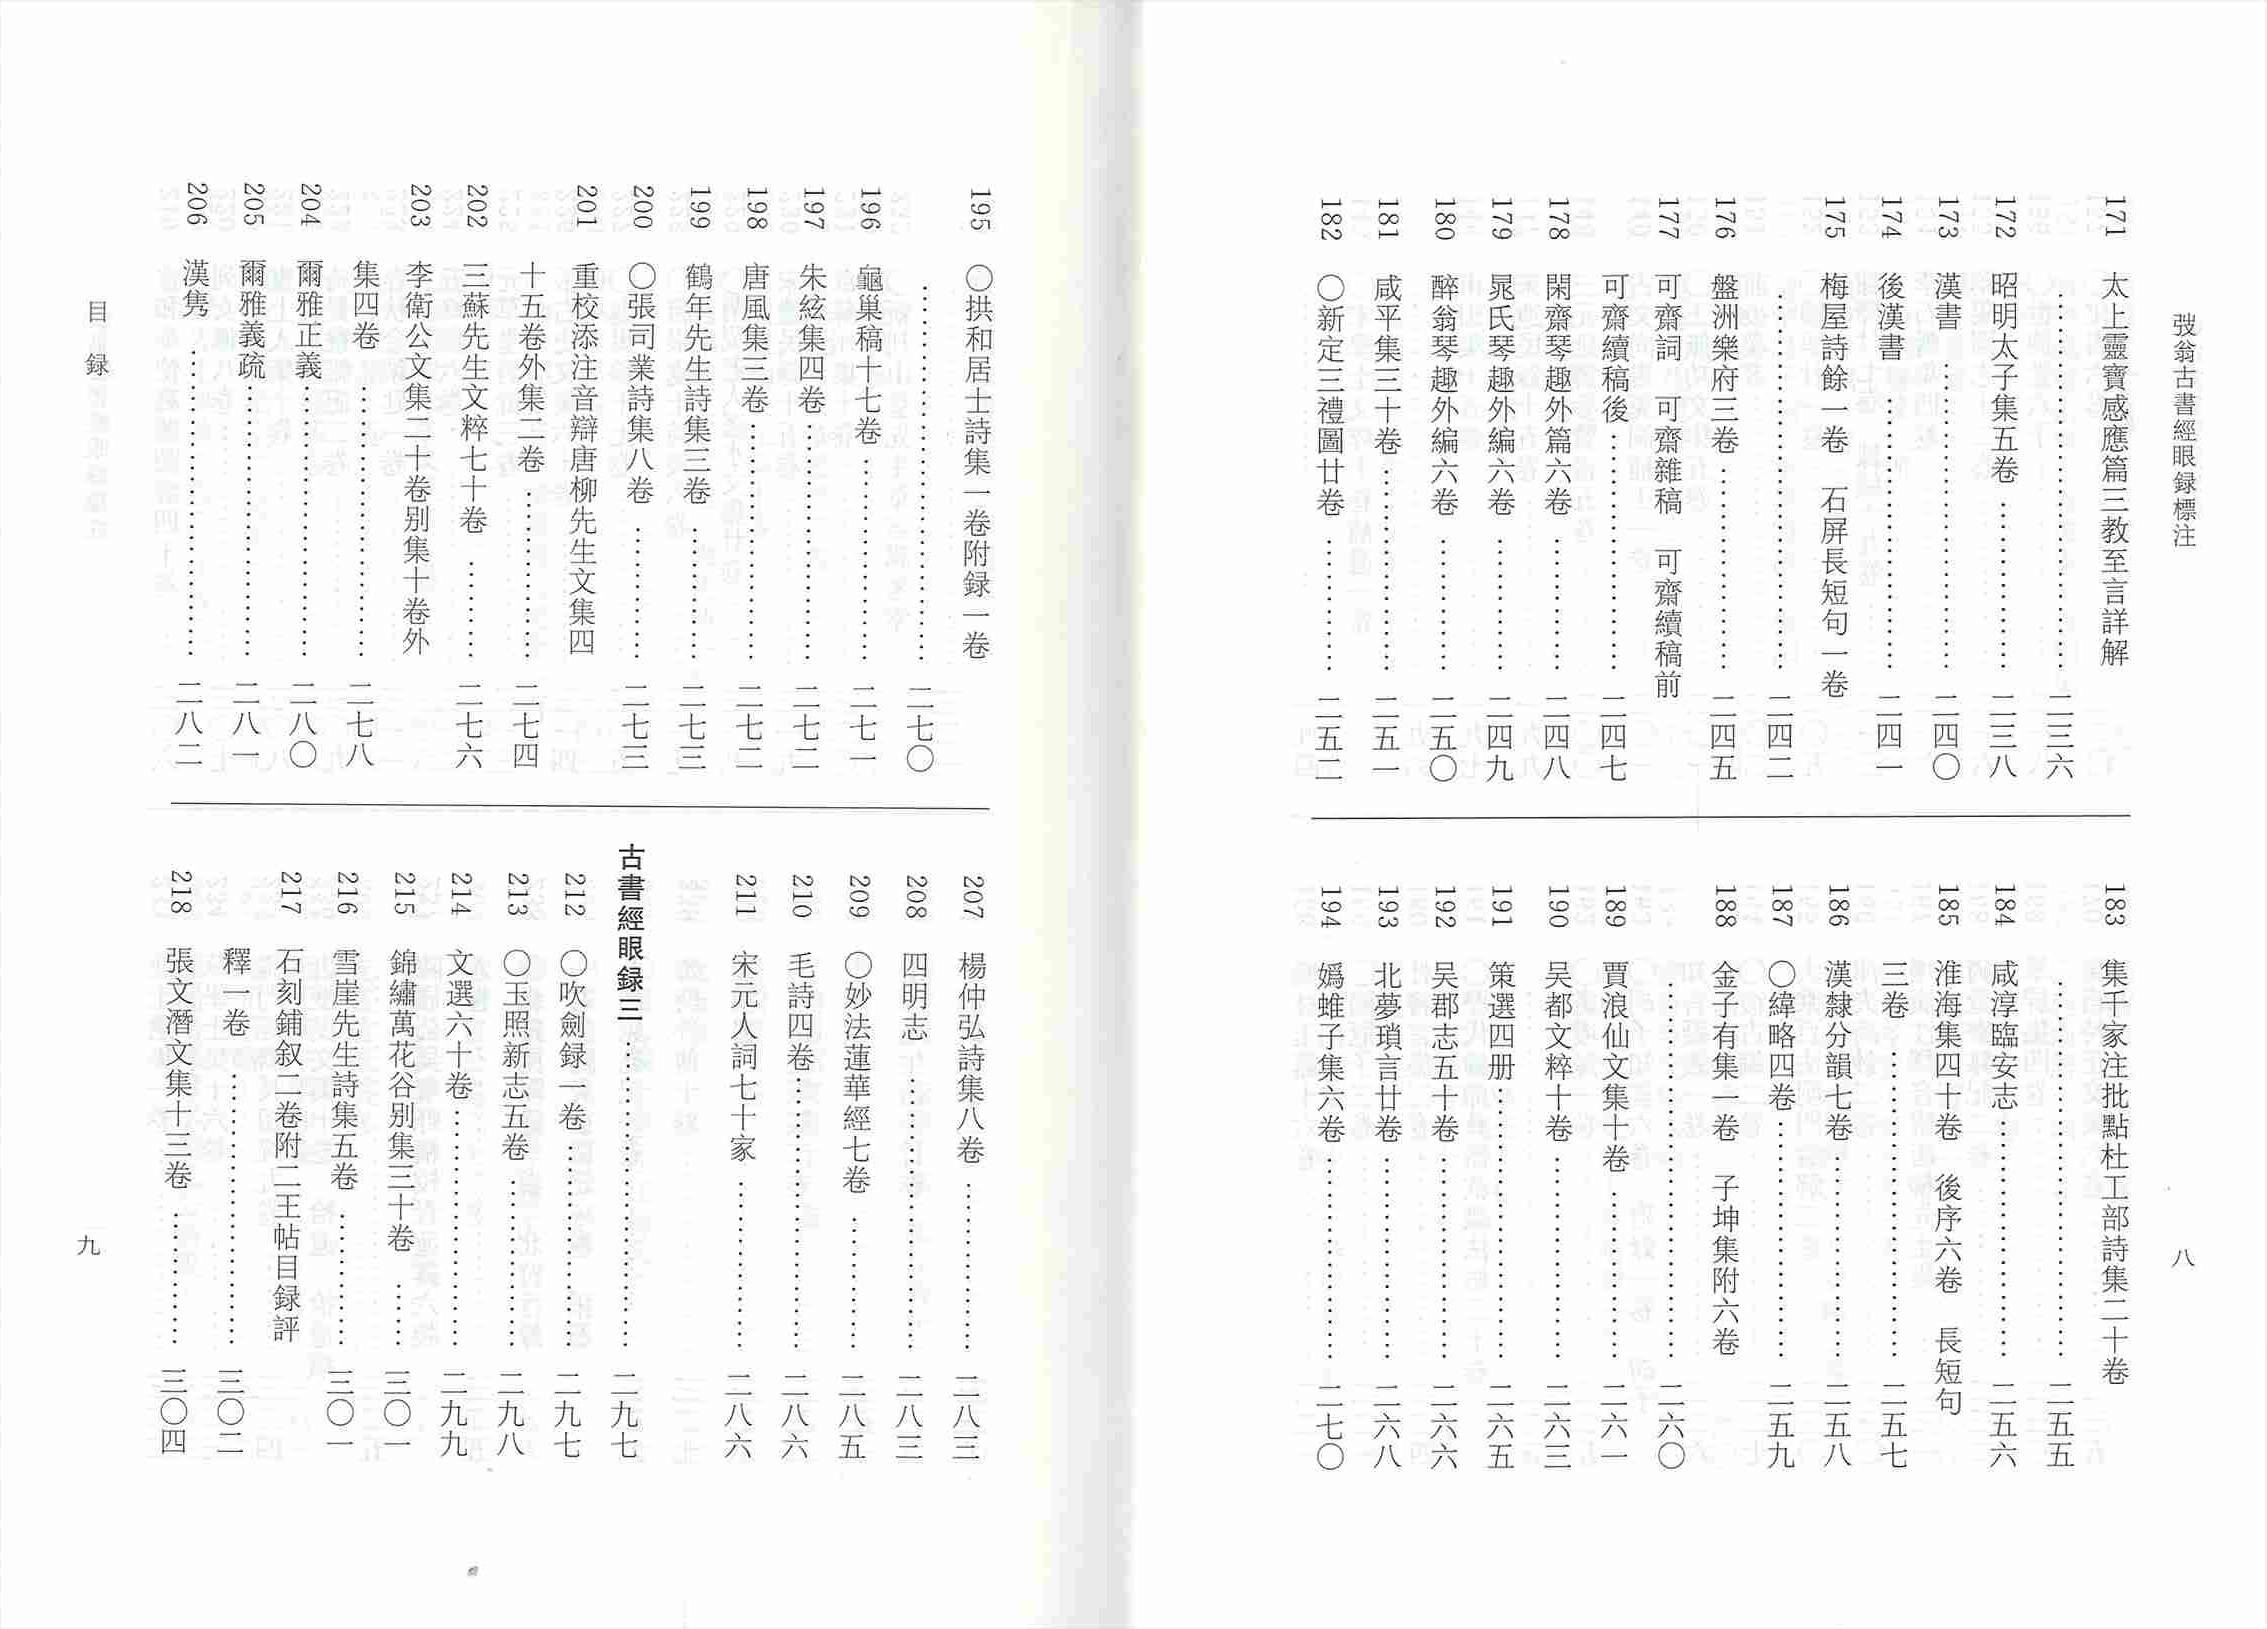 弢翁古書經眼録標注
171 太上靈寶感應篇三教至言詳解
……………………二三六
172 昭明太子集五卷……………………二三八
173 漢書……………………二四〇
174 後漢書……………………二四一
175 梅屋詩餘一卷 石屏長短句一卷
……………………二四二
176 盤洲樂府三卷……………………二四五
177 可齋詞 可齋雜稿 可齋續稿前
可齋續稿後……………………二四七
178 閑齋琴趣外篇六卷……………………二四八
179 晁氏琴趣外編六卷……………………二四九
180 醉翁琴趣外編六卷……………………二五〇
181 咸平集三十卷……………………二五一
182 〇新定三禮圖廿卷……………………二五二
183 集千家注批點杜工部詩集二十卷
……………………二五五
184 咸淳臨安志……………………二五六
185 淮海集四十卷 後序六卷 長短句
三卷……………………二五七
186 漢隸分韻七卷……………………二五八
187 〇緯略四卷……………………二五九
188 金子有集一卷 子坤集附六卷
……………………二六〇
189 賈浪仙文集十卷……………………二六一
190 吴都文粹十卷……………………二六三
191 策選四册……………………二六五
192 吴郡志五十卷……………………二六六
193 北夢瑣言廿卷……………………二六八
194 嬀蜼子集六卷……………………二七〇
八
195 〇拱和居士詩集一卷附録一卷
……………………二七〇
196 龜巢稿十七卷……………………二七一
197 朱絃集四卷……………………二七二
198 唐風集三卷……………………二七二
199 鶴年先生詩集三卷……………………二七三
200 〇張司業詩集八卷……………………二七三
201 重校添注音辯唐柳先生文集四
十五卷外集二卷……………………二七四
202 三蘇先生文粹七十卷……………………二七六
203 李衛公文集二十卷别集十卷外
集四卷……………………二七八
204 爾雅正義……………………二八〇
205 爾雅義疏……………………二八一
206 漢雋……………………二八二
207 楊仲弘詩集八卷……………………二八三
208 四明志……………………二八三
209 〇妙法蓮華經七卷……………………二八五
210 毛詩四卷……………………二八六
211 宋元人詞七十家……………………二八六
古書經眼録三……………………二九七
212 〇吹劍録一卷……………………二九七
213 〇玉照新志五卷……………………二九八
214 文選六十卷……………………二九九
215 錦繡萬花谷别集三十卷……………………三〇一
216 雪崖先生詩集五卷……………………三〇一
217 石刻鋪叙二卷附二王帖目録評
釋一卷……………………三〇二
218 張文潛文集十三卷……………………三〇四
目録
九